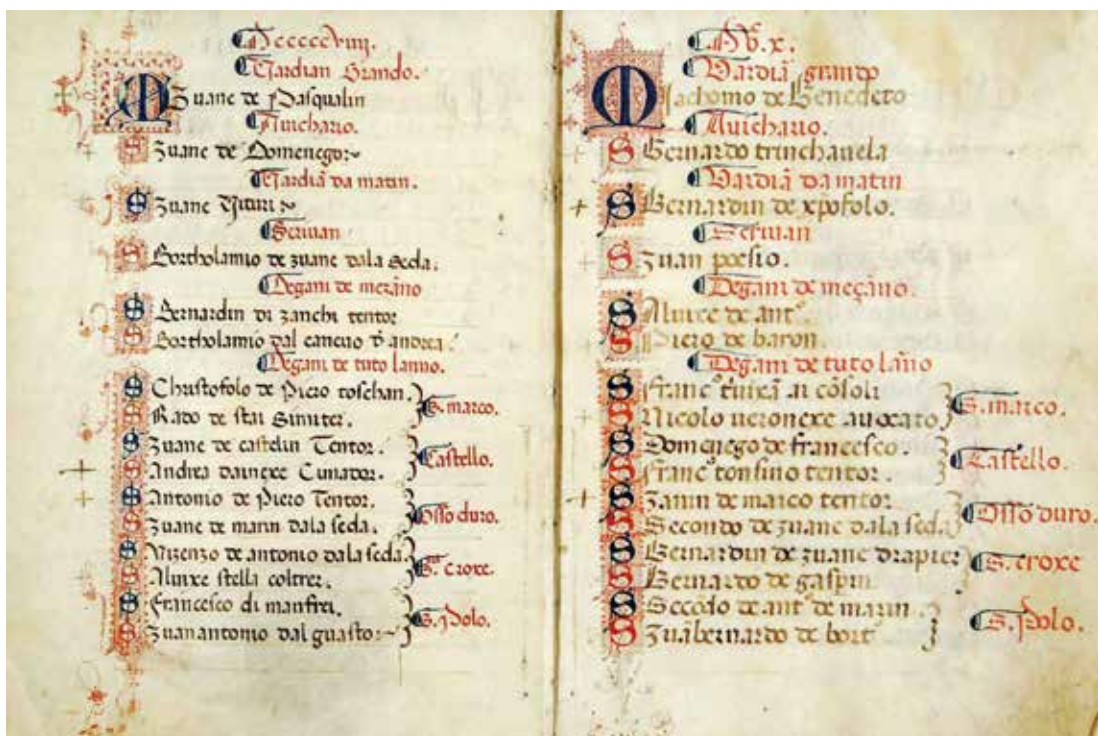 Mcccccviiii.
Vardian Grando.
M Zuane de Pasqualin
Avichario.
S Zuane de Domenego
Vardiã da matin.
S Zuane
Scrivan
S Bortholamio de zuane dala seda.
Degani de mezano
S Bernardin di zanchi tentor
S Bortholamio dal andrea.
Degani de tuto lanno.
S Christofolo de Piero toschan.
S Rado de stai
S. marco.
S Zuane de castelin Tentor.
S Andrea davnexe Cimador.
Castello.
S Antonio de Piero Tentor.
S Zuane de marin dala seda.
Osso duro.
S Vizenzo de antonio dala seda
S Aluixe stella coltrer.
S. croxe.
S Francesco di manfrei.
S Zuanantonio dal guasto
S. Polo.
Mv.x.
Vardiã grando
M Iachomo de Benedeto
Avichario.
S Bernardo trinchavela
Vardiã da matin
S Bernardin de xpofolo.
Scrivan
S Zuan poesio.
Degani de meçano.
S Aluixe de ant°
S Piero de baron.
Degani de tuto lãno
S Franc° ai cõsoli
S Nicolo veronexe avocato
S. marco.
S Domenego de francesco.
S Franc° tonsino tentor.
Castello.
S Zanin de marco tentor
S Secondo de zuane dala seda
Osso duro.
S Bernardin de zuane drapier
S Bernardo de gaspin
S. croxe
S Secõdo de ant° de marin.
S Zuãbernardo de bort°
S. Polo.